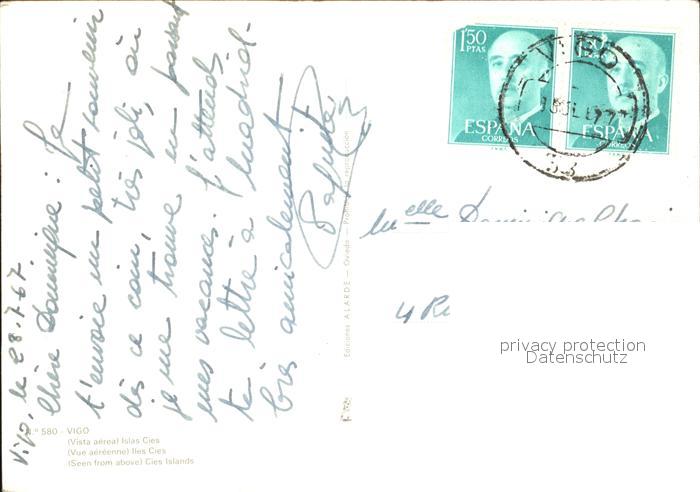 Vigo, le 28.7.67.
Chère Dominique: Je
t'envoie un petit souvenir
dès ce coin, très joli, où
je me trouve en passant
mes vacances. J'attends
te lettre à Madrid.
Très amicalement
Nº 580 - VIGO
(Vista aérea) Islas Cies
(Vue aéréenne) Iles Cies
(Seen from above) Cies Islands
Ediciones ALARDE — Oviedo — Prohibida la reproducción
1'50
PTAS
ESPAÑA
CORREOS
1'50
ESPAÑA
CORREOS
VIGO
Melle Dominique
4
privacy protection
Datenschutz